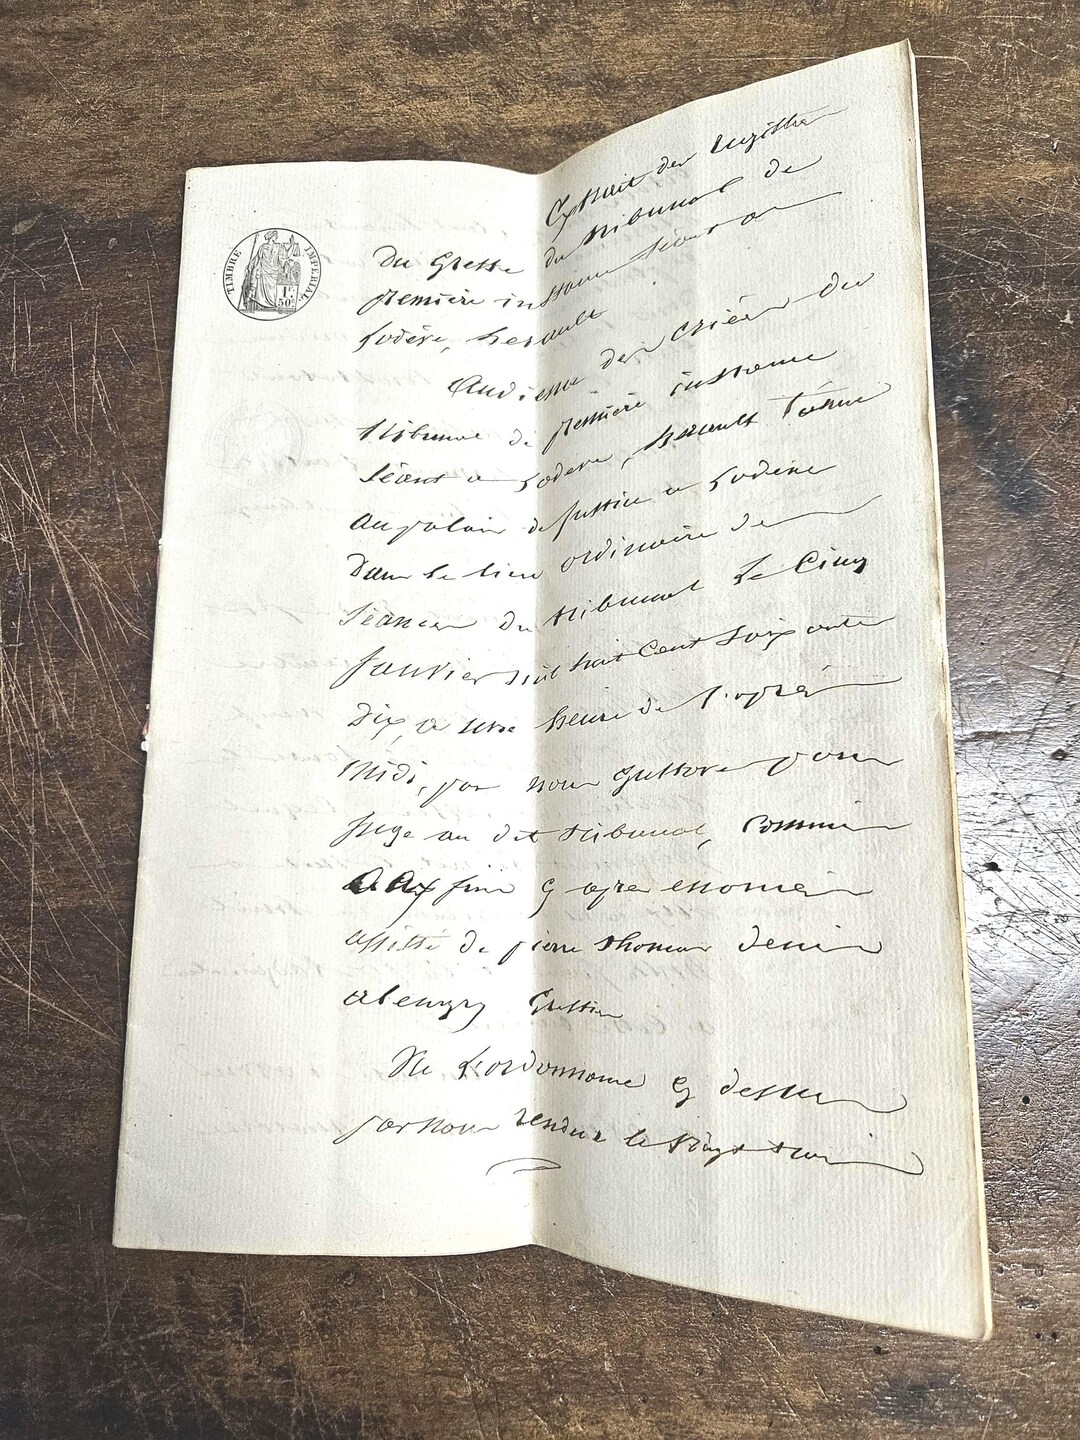 TIMBRE IMPERIAL
1F.
50C.
Extrait des Registres
Du Greffe du tribunal de
première instance séant a
Lodève, herault
Audience des Criées du
tribunal de première instance
séant a Lodève, herault tenue
au palais de justice a Lodève
Dans le lieu ordinaire des
séances du tribunal Le Cinq
Janvier mil huit Cent soixante
Dix, a une heure de l'après
midi, par nous Gustave
juge au dit tribunal, commis
aux fins cy après
assisté de pierre thomas denis
Greffier
L'ordonnance cy dessus
par nous rendue le vingt trois